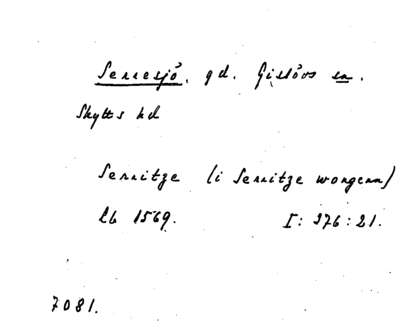 Serresjö, gd. Gislövs sn.
Skytts hd
Serritze (i Serritze wongenn)
Lb 1569. I: 376: 21.
7081.